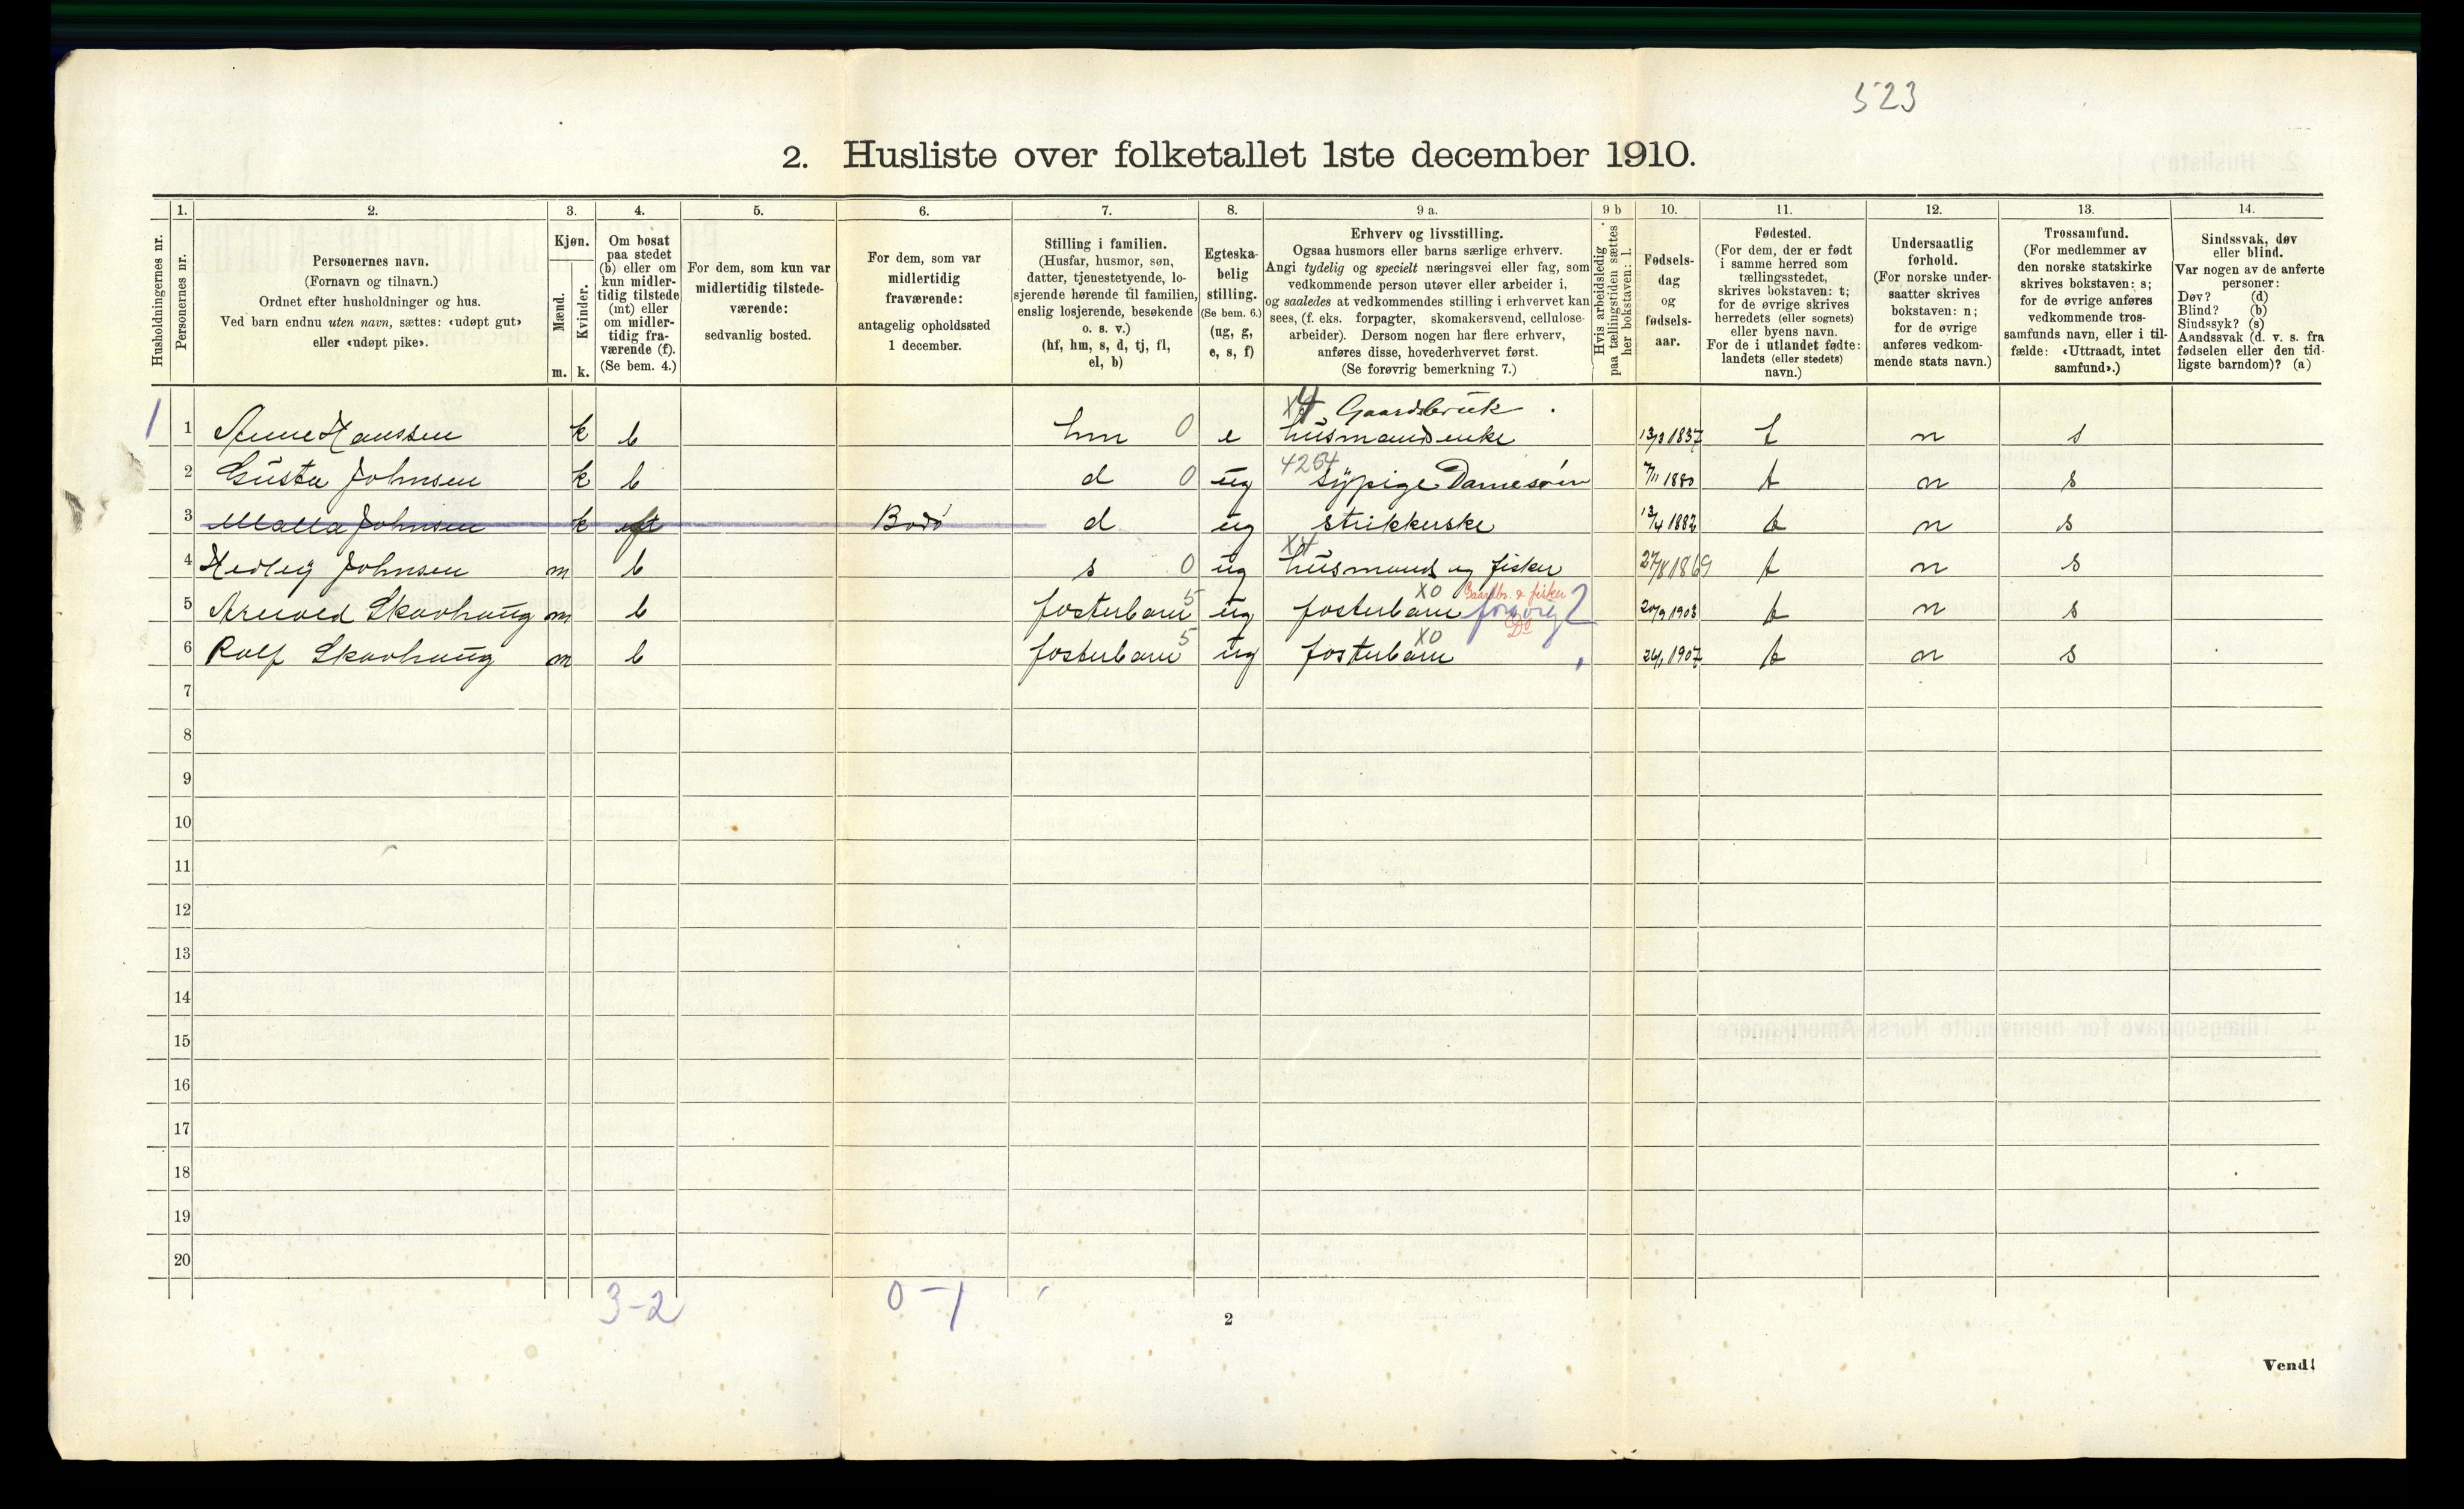 523
2. Husliste over folketallet 1ste december 1910.
Husholdningernes nr.
1.
Personernes nr.
2.
Personernes navn.
(Fornavn og tilnavn.)
Ordnet efter husholdninger og hus.
Ved barn endnu uten navn, sættes: «udøpt gut»
eller «udøpt pike».
3.
Kjøn.
Mænd.
Kvinder.
m. k.
4.
Om bosat
paa stedet
(b) eller om
kun midler-
tidig tilstede
(mt) eller
om midler-
tidig fra-
værende (f).
(Se bem. 4.)
5.
For dem, som kun var
midlertidig tilstede-
værende:
sedvanlig bosted.
6.
For dem, som var
midlertidig
fraværende:
antagelig opholdssted
1 december.
7.
Stilling i familien.
(Husfar, husmor, søn,
datter, tjenestetyende, lo-
sjerende hørende til familien,
enslig losjerende, besøkende
o. s. v.)
(hf, hm, s, d, tj, fl,
el, b)
8.
Egteska-
belig
stilling.
(Se bem. 6.)
(ug, g,
e, s, f)
9 a.
Erhverv og livsstilling.
Ogsaa husmors eller barns særlige erhverv.
Angi tydelig og specielt næringsvei eller fag, som
vedkommende person utøver eller arbeider i,
og saaledes at vedkommendes stilling i erhvervet kan
sees, (f. eks. forpagter, skomakersvend, cellulose-
arbeider). Dersom nogen har flere erhverv,
anføres disse, hovederhvervet først.
(Se forøvrig bemerkning 7.)
9 b
Hvis arbeidsledig
paa tællingstiden sættes
her bokstaven: l.
10.
Fødsels-
dag
og
fødsels-
aar.
11.
Fødested.
(For dem, der er født
i samme herred som
tællingsstedet,
skrives bokstaven: t;
for de øvrige skrives
herredets (eller sognets)
eller byens navn.
For de i utlandet fødte:
landets (eller stedets)
navn.)
12.
Undersaatlig
forhold.
(For norske under-
saatter skrives
bokstaven: n;
for de øvrige
anføres vedkom-
mende stats navn.)
13.
Trossamfund.
(For medlemmer av
den norske statskirke
skrives bokstaven: s;
for de øvrige anføres
vedkommende tros-
samfunds navn, eller i til-
fælde: «Uttraadt, intet
samfund».)
14.
Sindssvak, døv
eller blind.
Var nogen av de anførte
personer:
Døv? (d)
Blind? (b)
Sindssyk? (s)
Aandssvak (d. v. s. fra
fødselen eller den tid-
ligste barndom)? (a)
X4 Gaardsbruk
1 1 Anne Hanssen k b hm 0 e husmandsenke 13/3 1837 t n s
4254
2 Gusta Johnsen k b d 0 ug sypige Damesøm 7/11 1880 t n s
3 Malla Johnsen k Bodø d ug strikkerske 13/4 1882 t n s
X4
4 Hedley Johnsen m b s 0 ug husmand og fisker 27/8 1869 t n s
XO Gaardbr. & fisker
5 Arnold Skavhaug m b fosterbarn 5 ug fosterbarn forsørg? 20/9 1903 t n s
XO Do
6 Rolf Skavhaug m b fosterbarn 5 ug fosterbarn 24/1 1907 t n s
7
8
9
10
11
12
13
14
15
16
17
18
19
20
3-2 0-1
2
Vend!